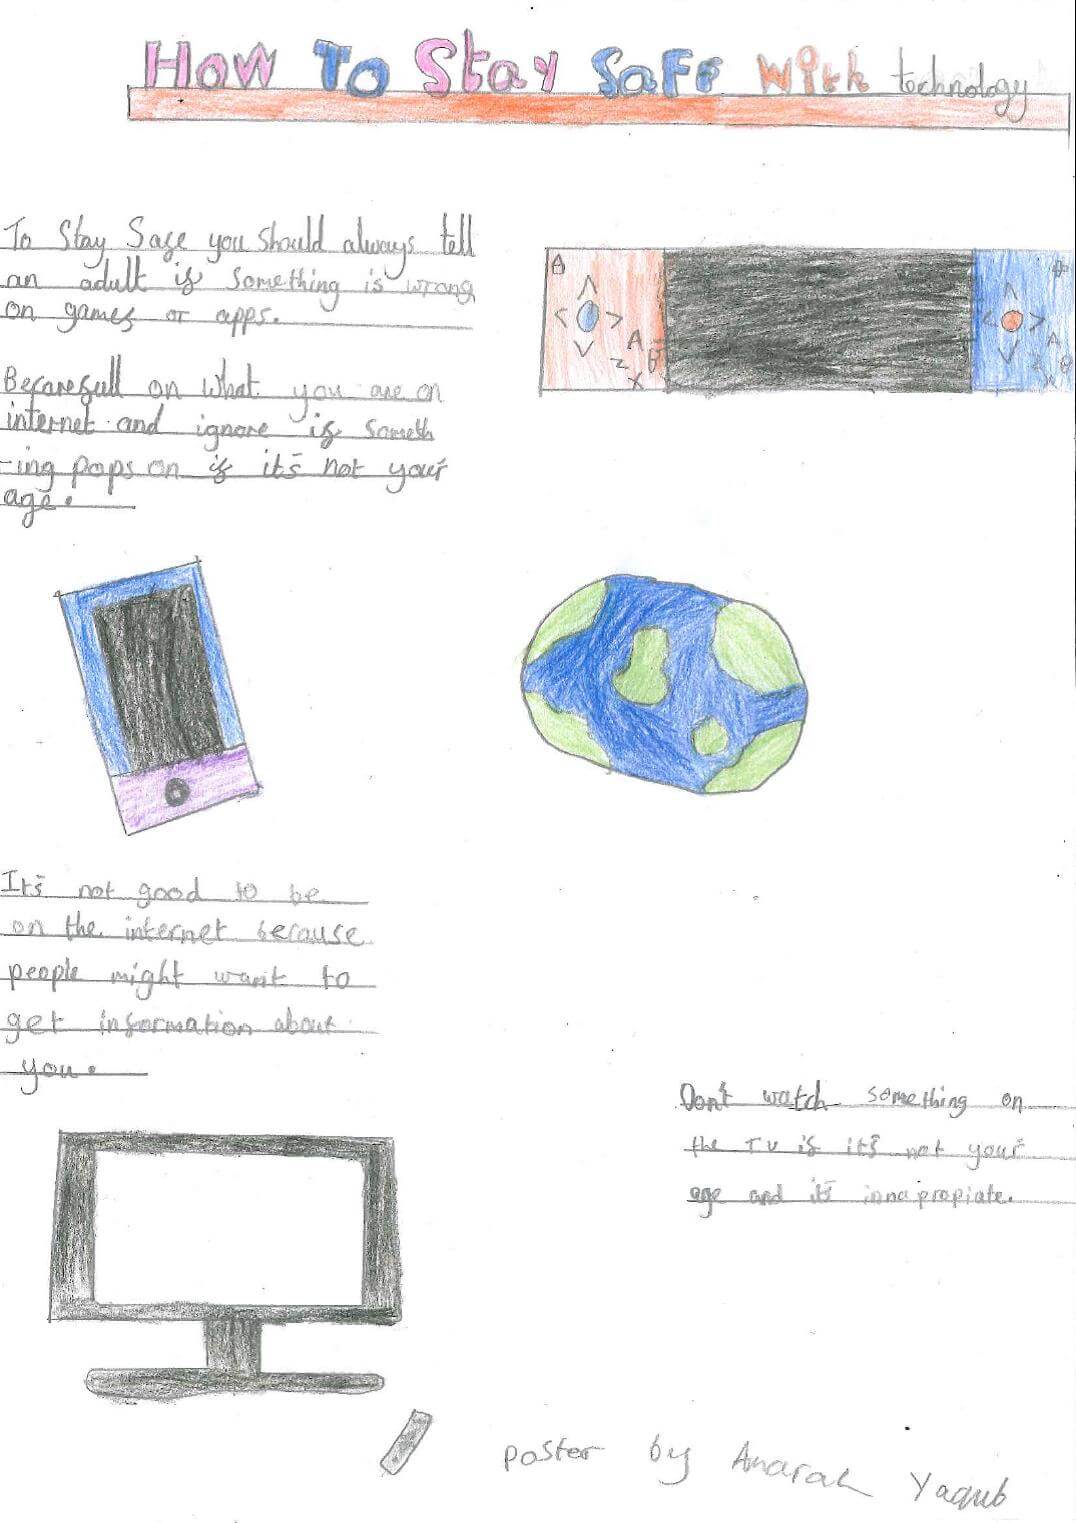 How To Stay Safe With technology
To Stay Safe you should always tell
an adult if something is wrong
on games or apps.
Becarefull on what you are on
internet and ignore if someth
-ing pops on if it's not your
age.
It's not good to be
on the internet because
people might want to
get information about
you.
Don't watch something on
the TV if it's not your
age and it's innapropiate.
poster by Amarah Yaqub